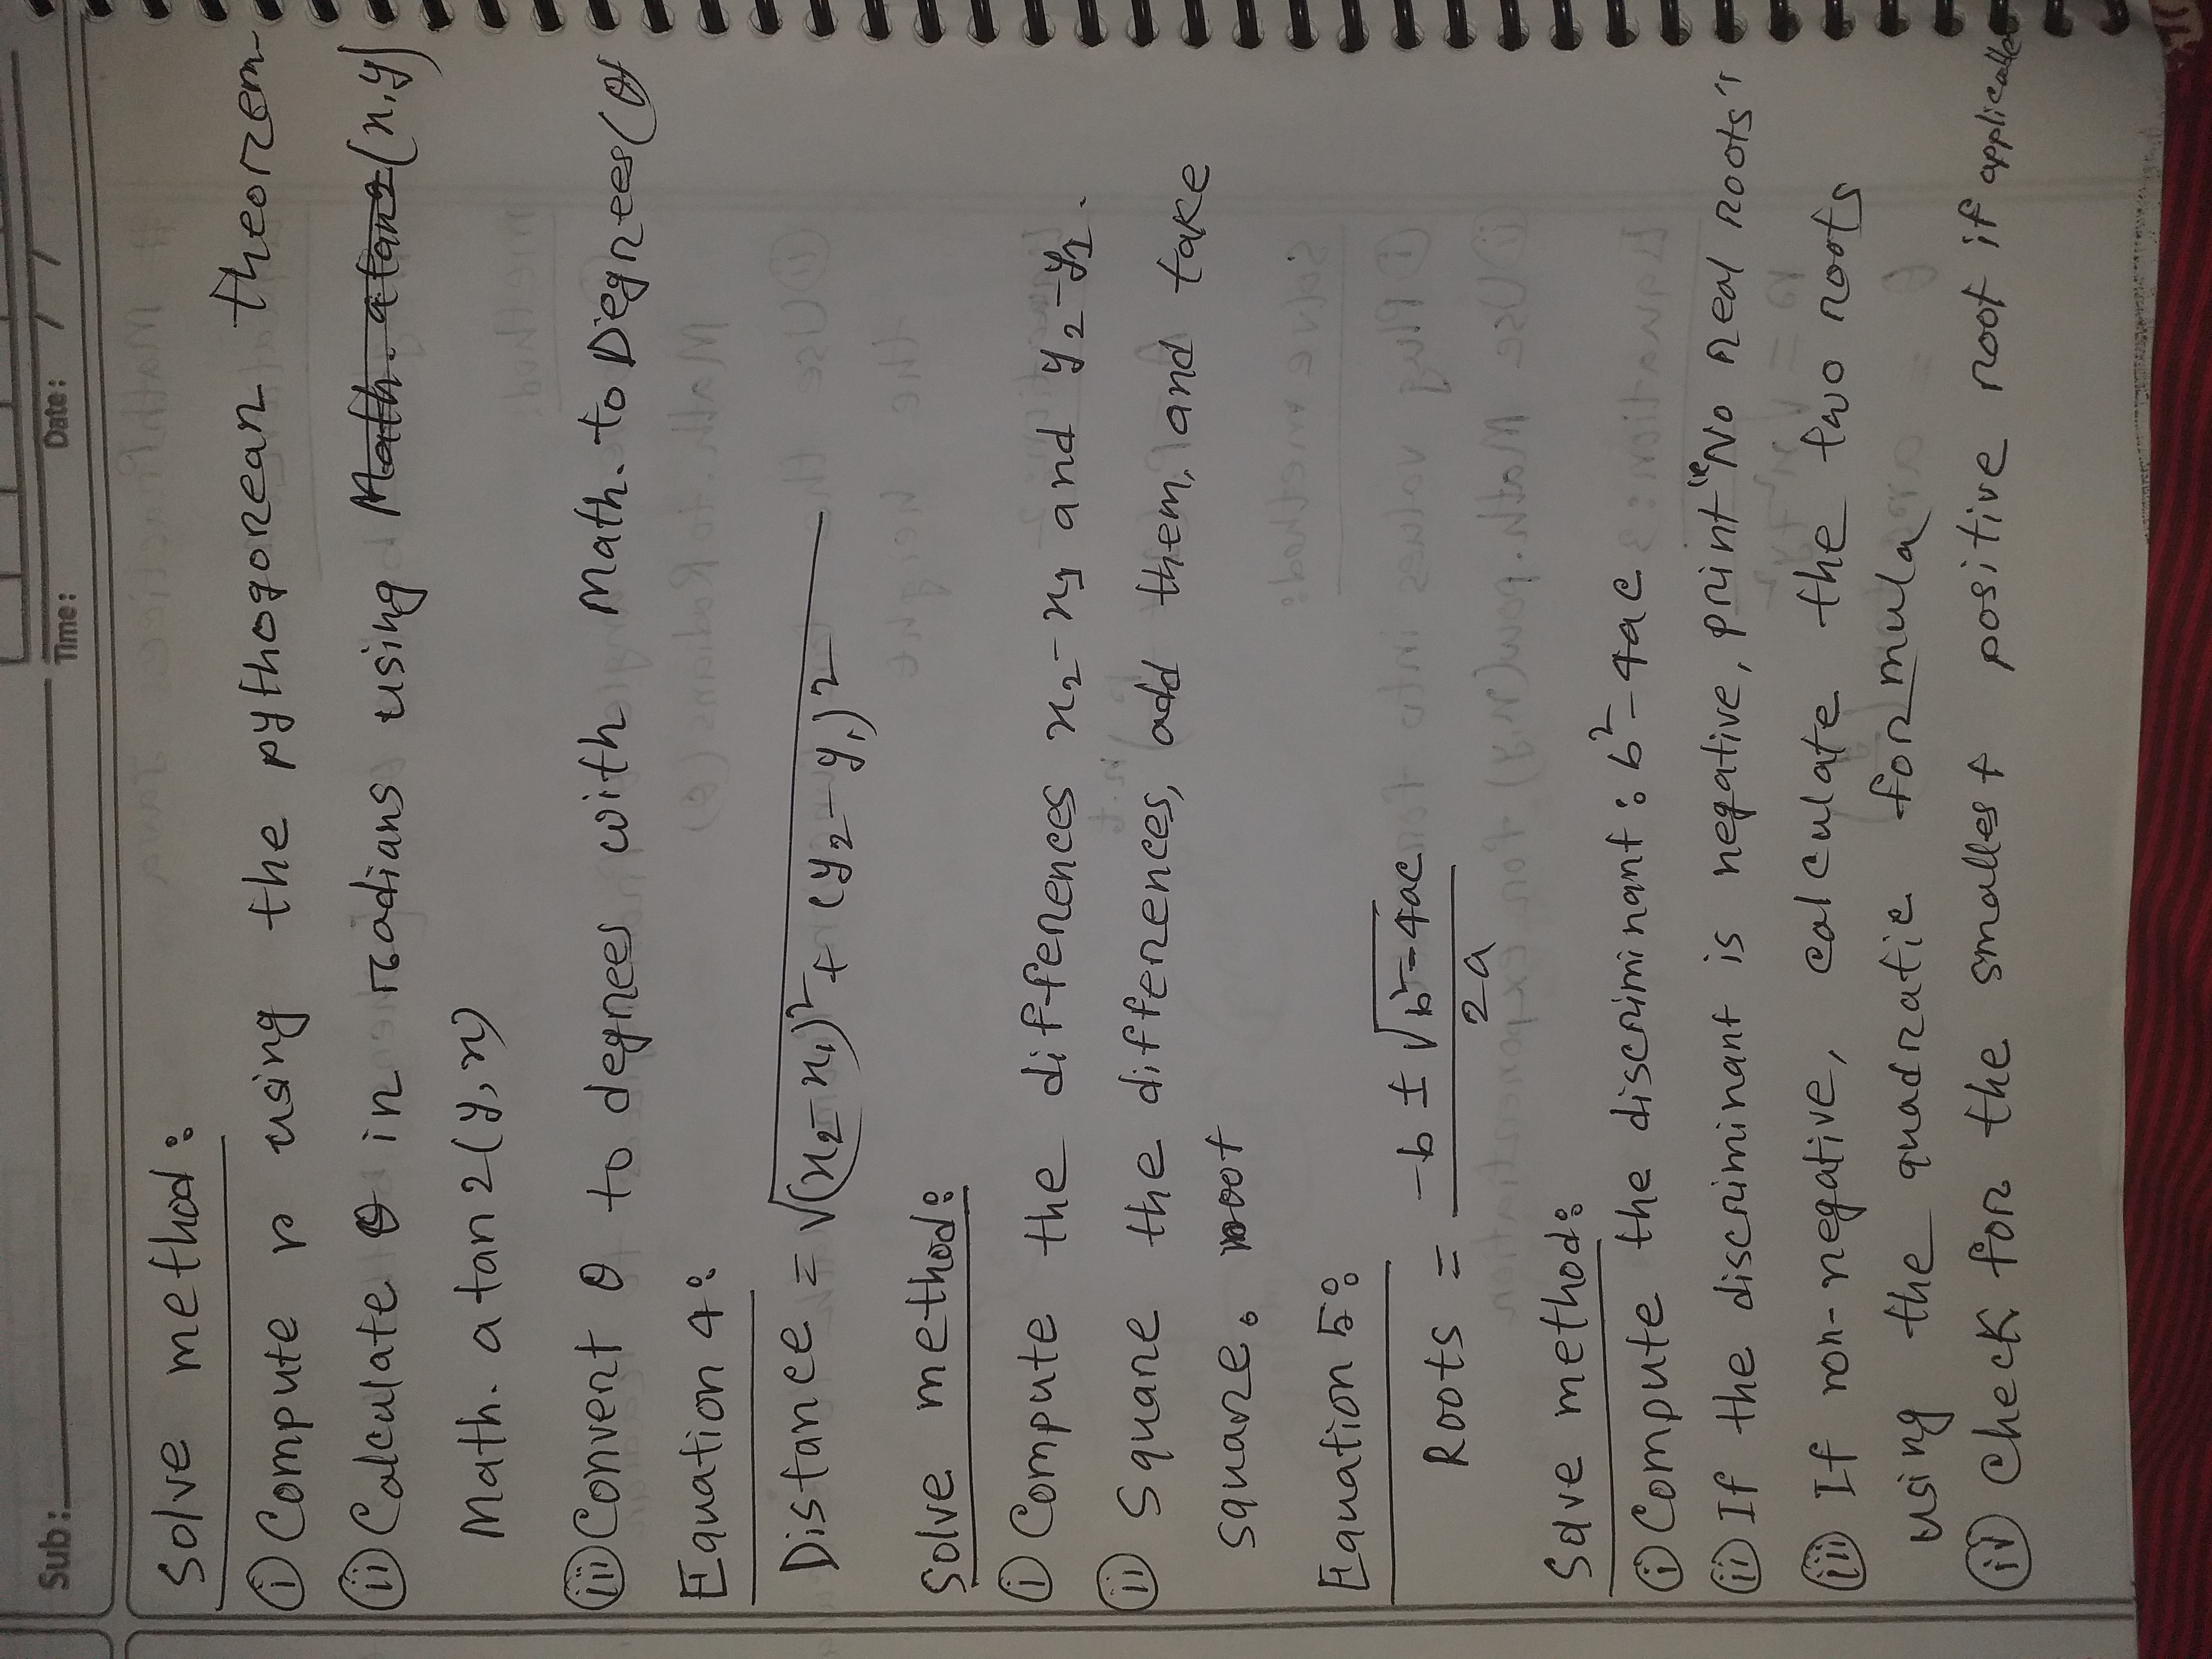 Sub:
Time: Date: / /
Solve method:
(i) Compute r using the pythogorean theorem
(ii) Calculate θ in radians using Math. atan2(x,y)
Math. atan2(y,x)
(iii) Convert θ to degrees with Math. to Degrees(θ)
Equation 4:
Distance = √(x₂-x₁)² + (y₂-y₁)²
Solve method:
(i) Compute the differences x₂-x₁ and y₂-y₁.
(ii) Square the differences, add them, and take
square. root
Equation 5:
Roots = (-b ± √b²-4ac) / 2a
Solve method:
(i) Compute the discriminant: b²-4ac
(ii) If the discriminant is negative, print "No real roots"
(iii) If non-negative, calculate the two roots
using the quadratic formula
(iv) Check for the smallest positive root if applicable